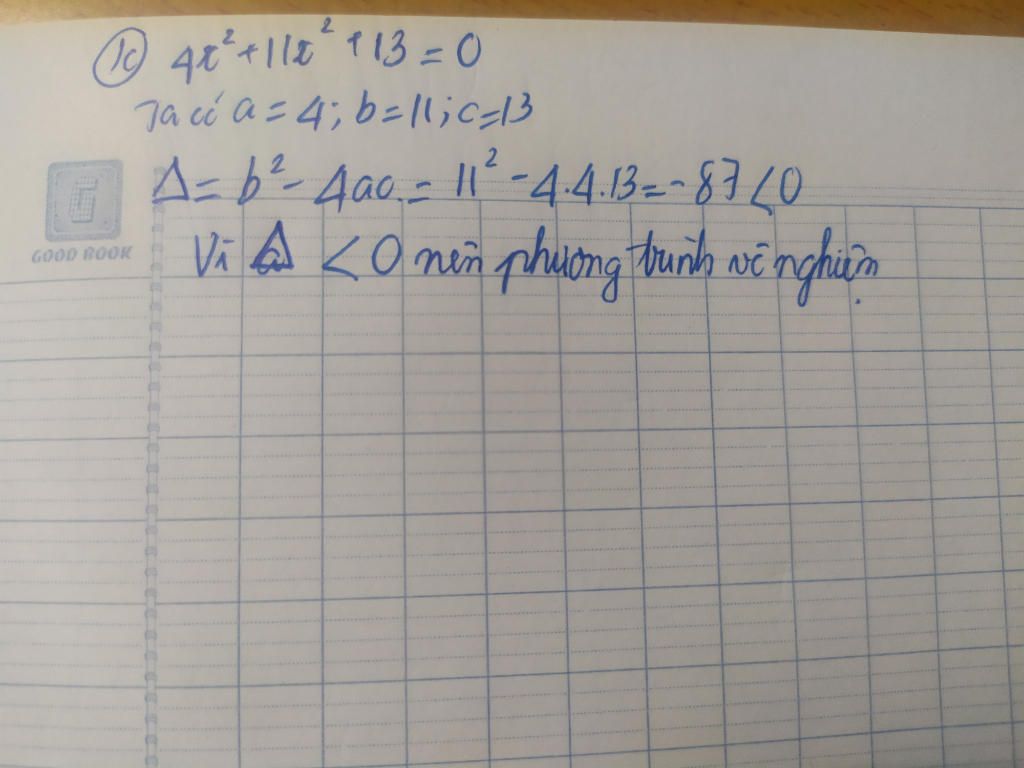 1c) 4x² + 11x² + 13 = 0
Ta có a = 4; b = 11; c = 13
Δ = b² - 4ac = 11² - 4.4.13 = -87 < 0
GOOD BOOK
Vì Δ < 0 nên phương trình vô nghiệm.